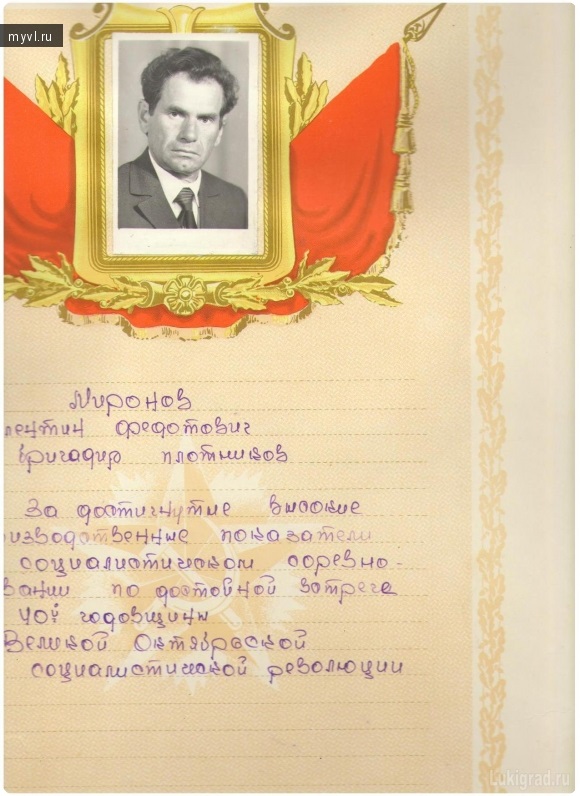 myvl.ru
Миронов
лентин Федотович
бригадир плотников
За достигнутые высокие
оизводственные показатели
социалистическом соревно-
вании по достойной встрече
40й годовщины
Великой Октябрьской
социалистической революции
Lukigrad.ru